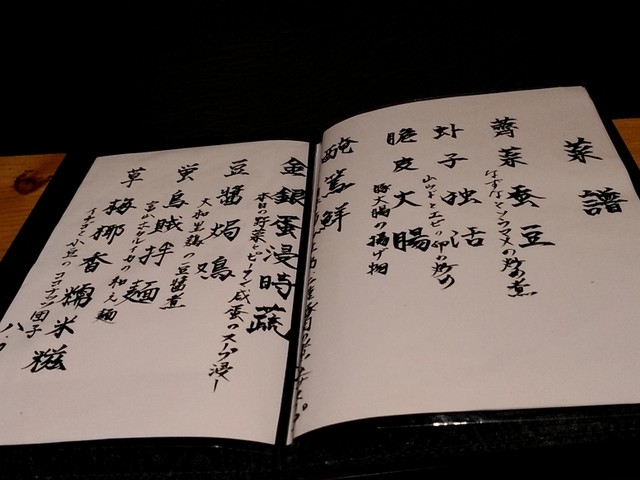 菜譜
薺菜蚕豆
なずなとソラマメの炒め煮
虾子独活
山ウドとエビの卵の炒め
脆皮大腸
豚大腸の揚げ物
腌篤鮮
金銀蛋浸時蔬
本日の野菜とピータン咸蛋のスープ浸し
豆醬焗鶏
大和黒鶏の豆醬煮
蛍烏賊拌麺
富山ホタルイカの和え麺
草梅椰香糯米糍
イチゴと小豆のココナッツ団子